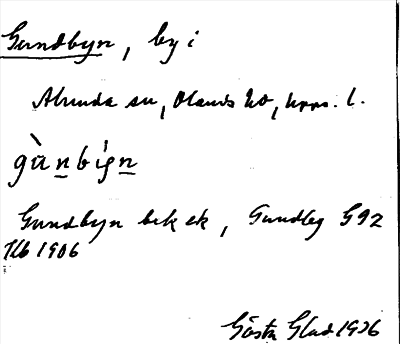 Gundbyn, by i
Alunda sn, Olands hd, Upps. l.
gùnbýn
Gundbyn bek ek, Gundby G92
Jb 1906
Gösta Glad 1936